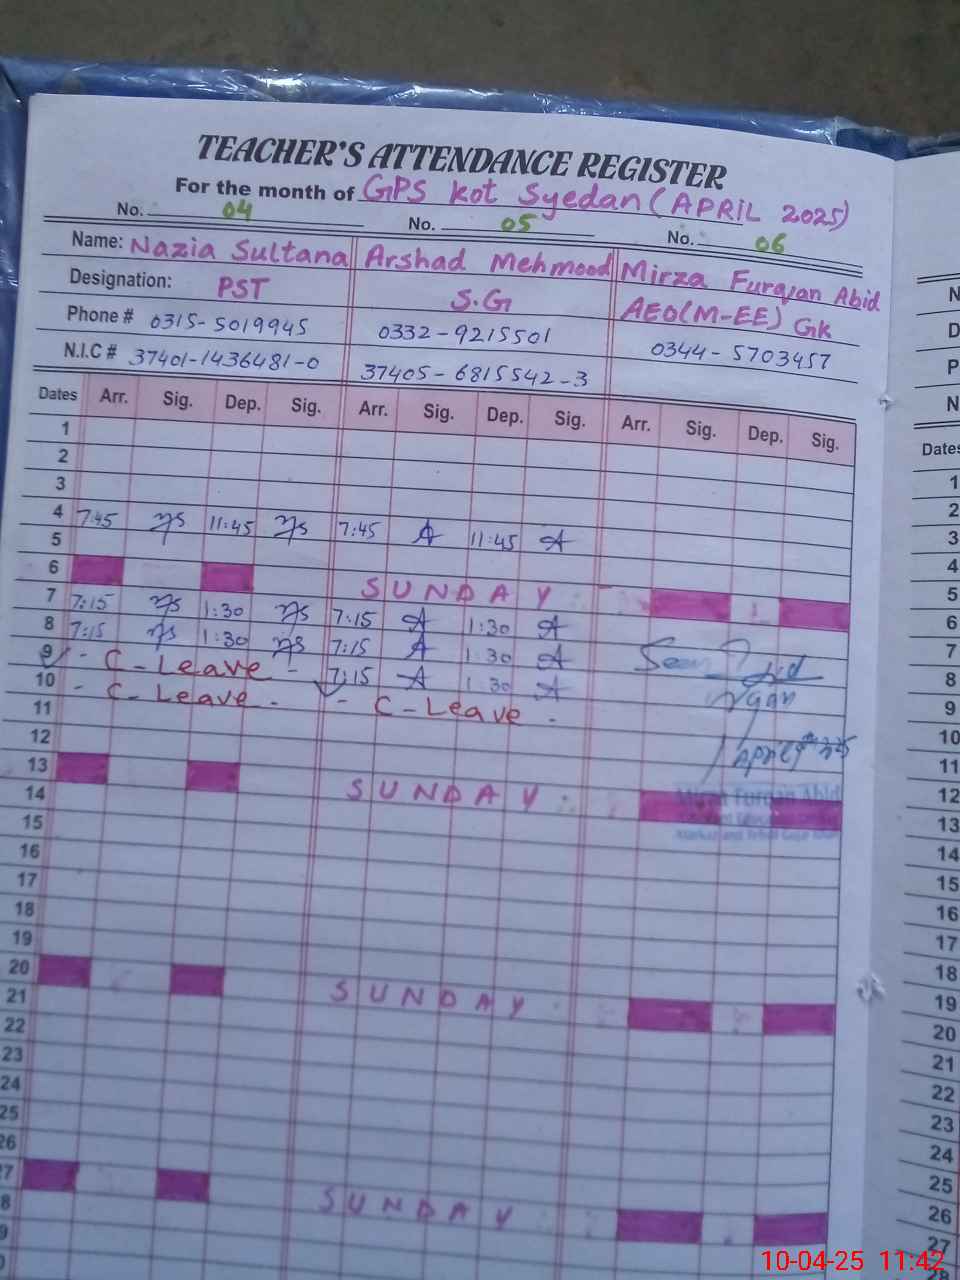 TEACHER'S ATTENDANCE REGISTER
For the month of GPS Kot Syedan (APRIL 2025)
No. 04 No. 05 No. 06
Name: Nazia Sultana Arshad Mehmood Mirza Furqan Abid
Designation: PST S.G AEO(M-EE) GK
Phone # 0315-5019945 0332-9215501 0344-5703457
N.I.C # 37401-1436481-0 37405-6815542-3
Dates Arr. Sig. Dep. Sig. Arr. Sig. Dep. Sig. Arr. Sig. Dep. Sig.
1
2
3
4 7:45 11:45 7:45 A 11:45 A
5
6 SUNDAY
7 7:15 1:30 7:15 A 1:30 A
8 7:15 1:30 7:15 A 1:30 A
9 - C-Leave - 7:15 A 1:30 A
10 - C-Leave - - C-Leave -
11
12
13 SUNDAY
14
15
16
17
18
19
20 SUNDAY
21
22
23
24
25
26
27 SUNDAY
Furqan Abid
N
D
P
N
Dates
1
2
3
4
5
6
7
8
9
10
11
12
13
14
15
16
17
18
19
20
21
22
23
24
25
26
27
10-04-25 11:42